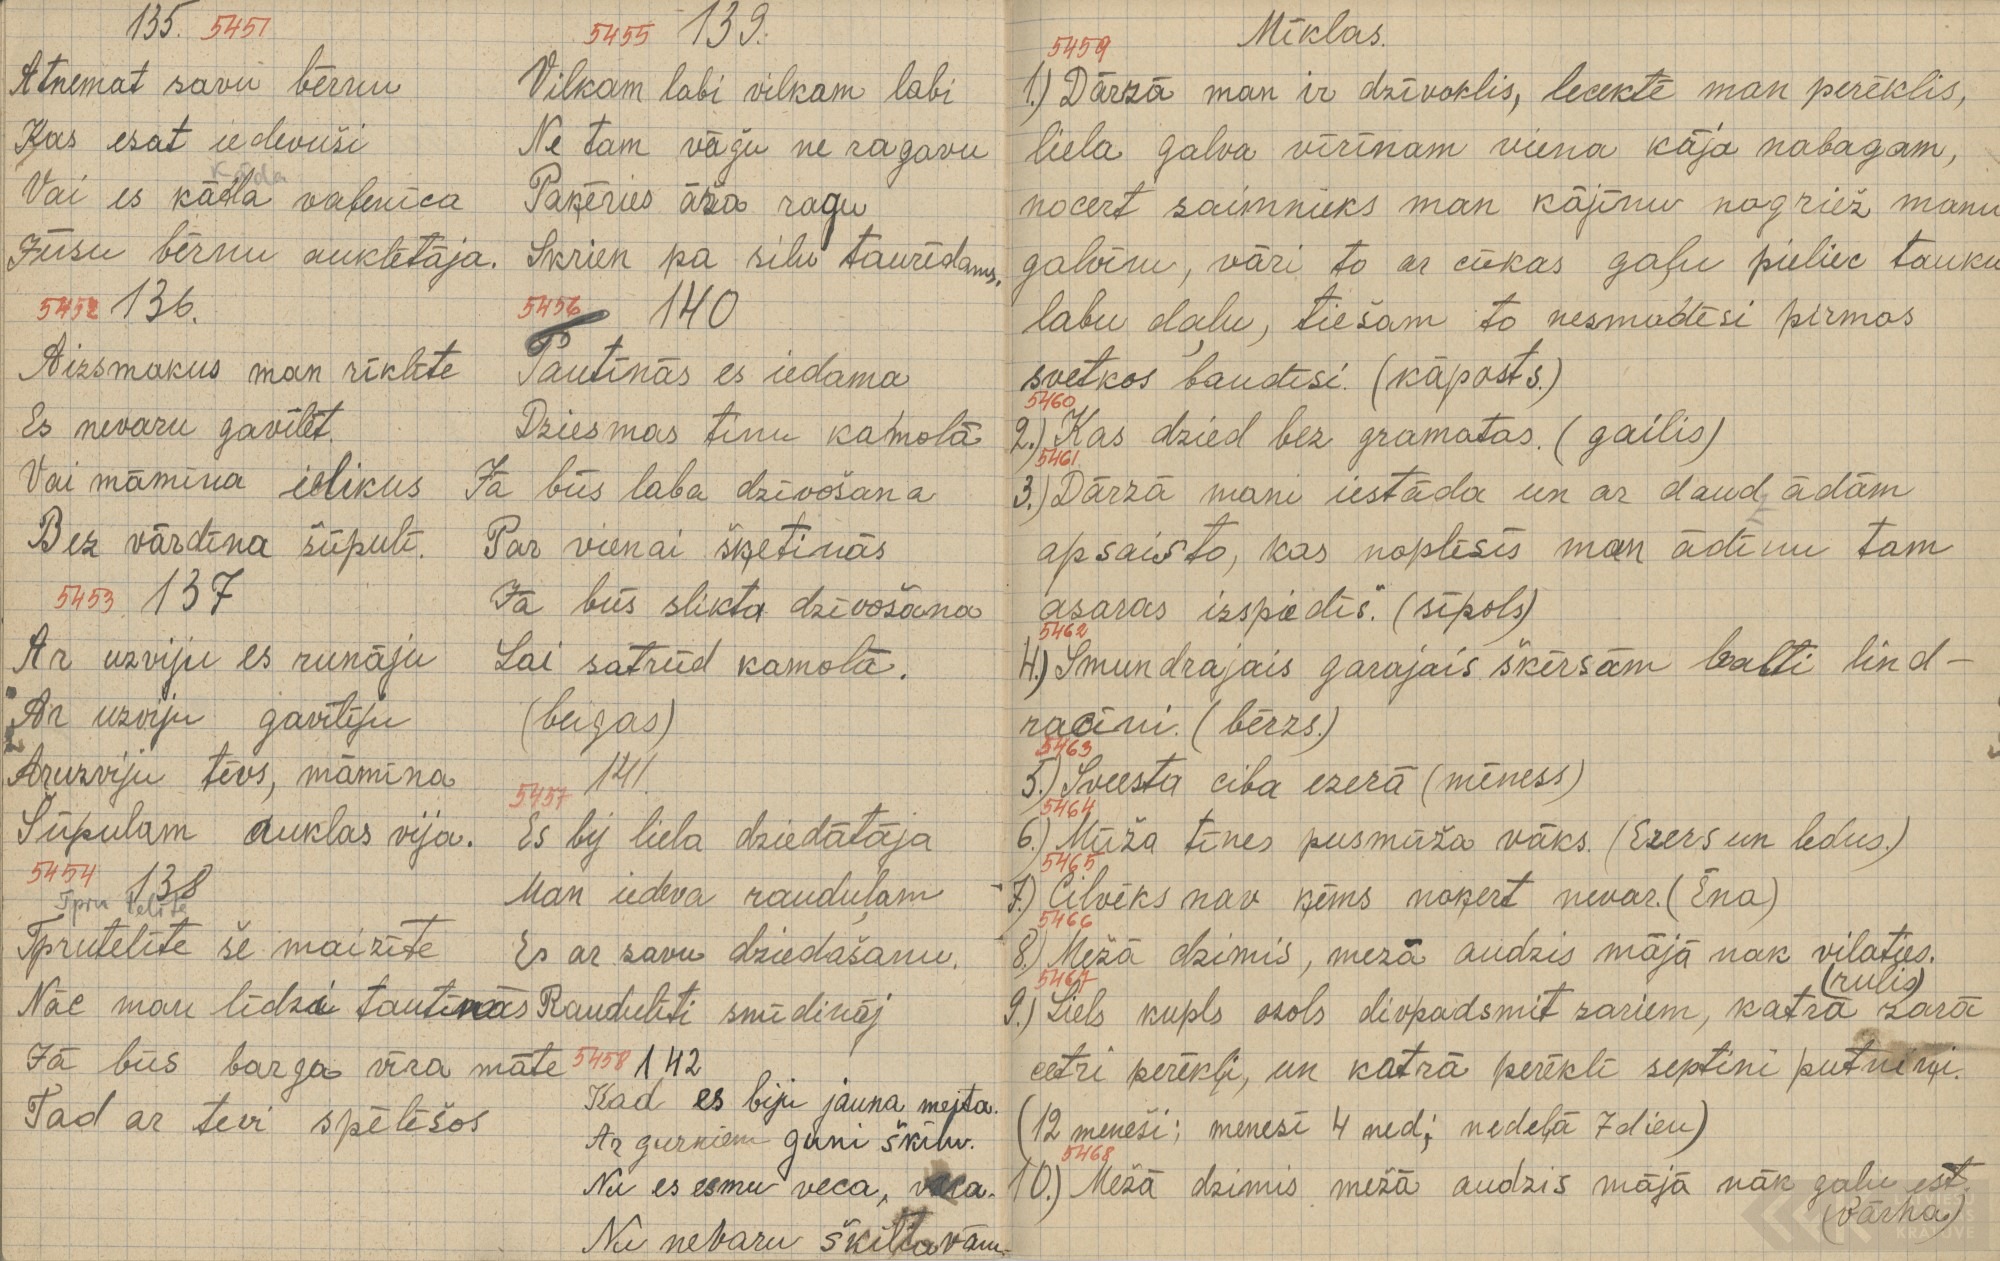 135. 5451
Atnemat savu bērnu
Kas esat iedevuši
Kāda
Vai es kādla vaļenica
Jūsu bērnu aukletāja.
5452 136.
Aizsmakus man rīklīte
Es nevaru gavilēt.
Vai māmiņa ielikus
Bez vārdiņa šūpulī.
5453 137
Ar uzviju es runāju
Ar uzviju gavilēju
Aruzviju tēvs, māmīna
Šūpulam auklas vija.
5454 138
Tpru telīte
Tprutelīte še maizīte
Nāc man līdzi tautiņās
Jā būs barga vīra māte
Tad ar tevi spēlēšos
5455 139.
Vilkam labi vilkam labi
Ne tam vāģu ne ragavu
Paķēries āža ragu
Skrien pa silu taurēdams.
5456 140
Tautīnās es iedama
Dziesmas tinu kamolā
Jā būs laba dzīvošana
Par vienai šķetinās
Jā būs slikta dzīvošana
Lai satrūd kamolā.
(beigas)
141.
5457
Es bij liela dziedātāja
Man iedeva rauduļam
Es ar savu dziedašanu.
Raudulīti smīdināj
5458 142
Kad es biju jauna mejta.
Ar gurniem guni šķīlu.
Nu es esmu veca, veca.
Nu nevaru šķilt
Mīklas.
5459
1.) Dārzā man ir dzīvoklis, lecektē man perēklis,
liela galva vīrīnam viena kāja nabagam,
nocert saimnieks man kājīnu nogriež manu
galvīnu, vāri to ar cūkas gaļu pieliec tauku
labu daļu, tiešam to nesmādēsi pirmos
svetkos baudīsi. (kāposts.)
5460
2.) Kas dzied bez gramatas. (gailis)
5461.
3.) Dārzā mani iestāda un ar daudz ādām
apsaisto, kas noplēsīs man ādīnu tam
asaras izspiedīš. (sīpols)
5462
4.) Smundrajais garajais šķērsām balti lind-
raciņi. (bērzs.)
5463
5.) Sviesta ciba ezerā (mēness)
5464
6.) Mūža tīnes pusmūža vāks. (Ezers un ledus.)
5465
7.) Cilvēks nav ķēms noķert nevar. (Ēna)
5466
8.) Mežā dzimis, mezā audzis mājā nak vilaties.
(rulis)
5467
9.) Liels kupls ozols divpadsmit zariem, katrā zarā
cetri perēkļi, un katrā perēklī septiņi putniņi.
(12 meneši; menesī 4 ned; nedeļā 7 dien)
5468
10.) Mežā dzimis mežā audzis mājā nāk gaļu ēst.
(Vārna)
LATVIEŠU
KRĀTUVE